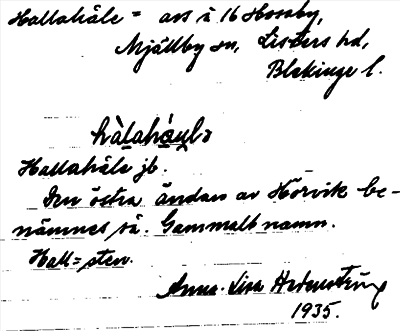 Hallahåle = avs å 16 Hosaby,
Mjällby sn, Listers hd,
Blekinge l.
hàlahåule
Hallahåle jb.
Den östra ändan av Hörvik be-
nämnes så. Gammalt namn.
Hall = sten.
Anna-Lisa
1935.